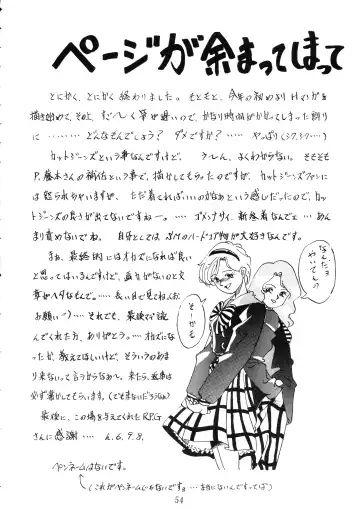 ページが余まってしまって
とにかく、とにかく終わりました。もともと、今年の初めよりHマンガを
描き始めて、そのよ、すごーく筆が遅いので、かなり時間がかかってしまった割り
に………どんなもんでしょう？ダメですか？……やっぱり(シクシク…)
カットジーンズという事なんですけど、うーん、よくわからない。そもそも
P.藤木さんの補佐という事で、描かしてもらったのですが、カットジーンズファン
には怒られちゃいますが、ただ着てればいいのかなぁという感じだったので、カッ
トジーンズの良さが出てないですねー。…ゴメンナサイ、新参者なんでェ…あん
まり責めないでね。自分としてはSMのハードコア物が大好きなんです。
まぁ、最終的にはオカズになれば良い
と思ってはいるんですけど、画力がないのと文
章がヘタなんで……長い目で見てね(お
お願い♡)……それでも、最後まで読
んでくれた方、ありがとう。…オカズにな
ったか、教えてほしいけど、そういうのあま
り来ないって言うからなぁ〜。来たら、返事は
必ず書かしてもらいます。(でも来ないだろうなぁ)
最後に、この場を与えてくれたR.P.G
さんに感謝…… 4.6.9.8.
なんだ
やってし!
そーかも
ペンネームはないです。
(これがペンネームじゃないですョ…本当にないんですってば)
54